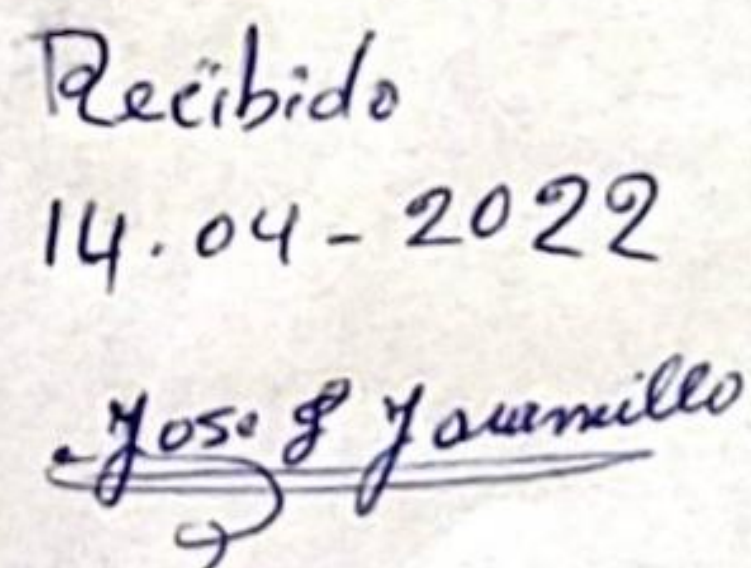 Recibido
14.04-2022
Jose J Jaramillo